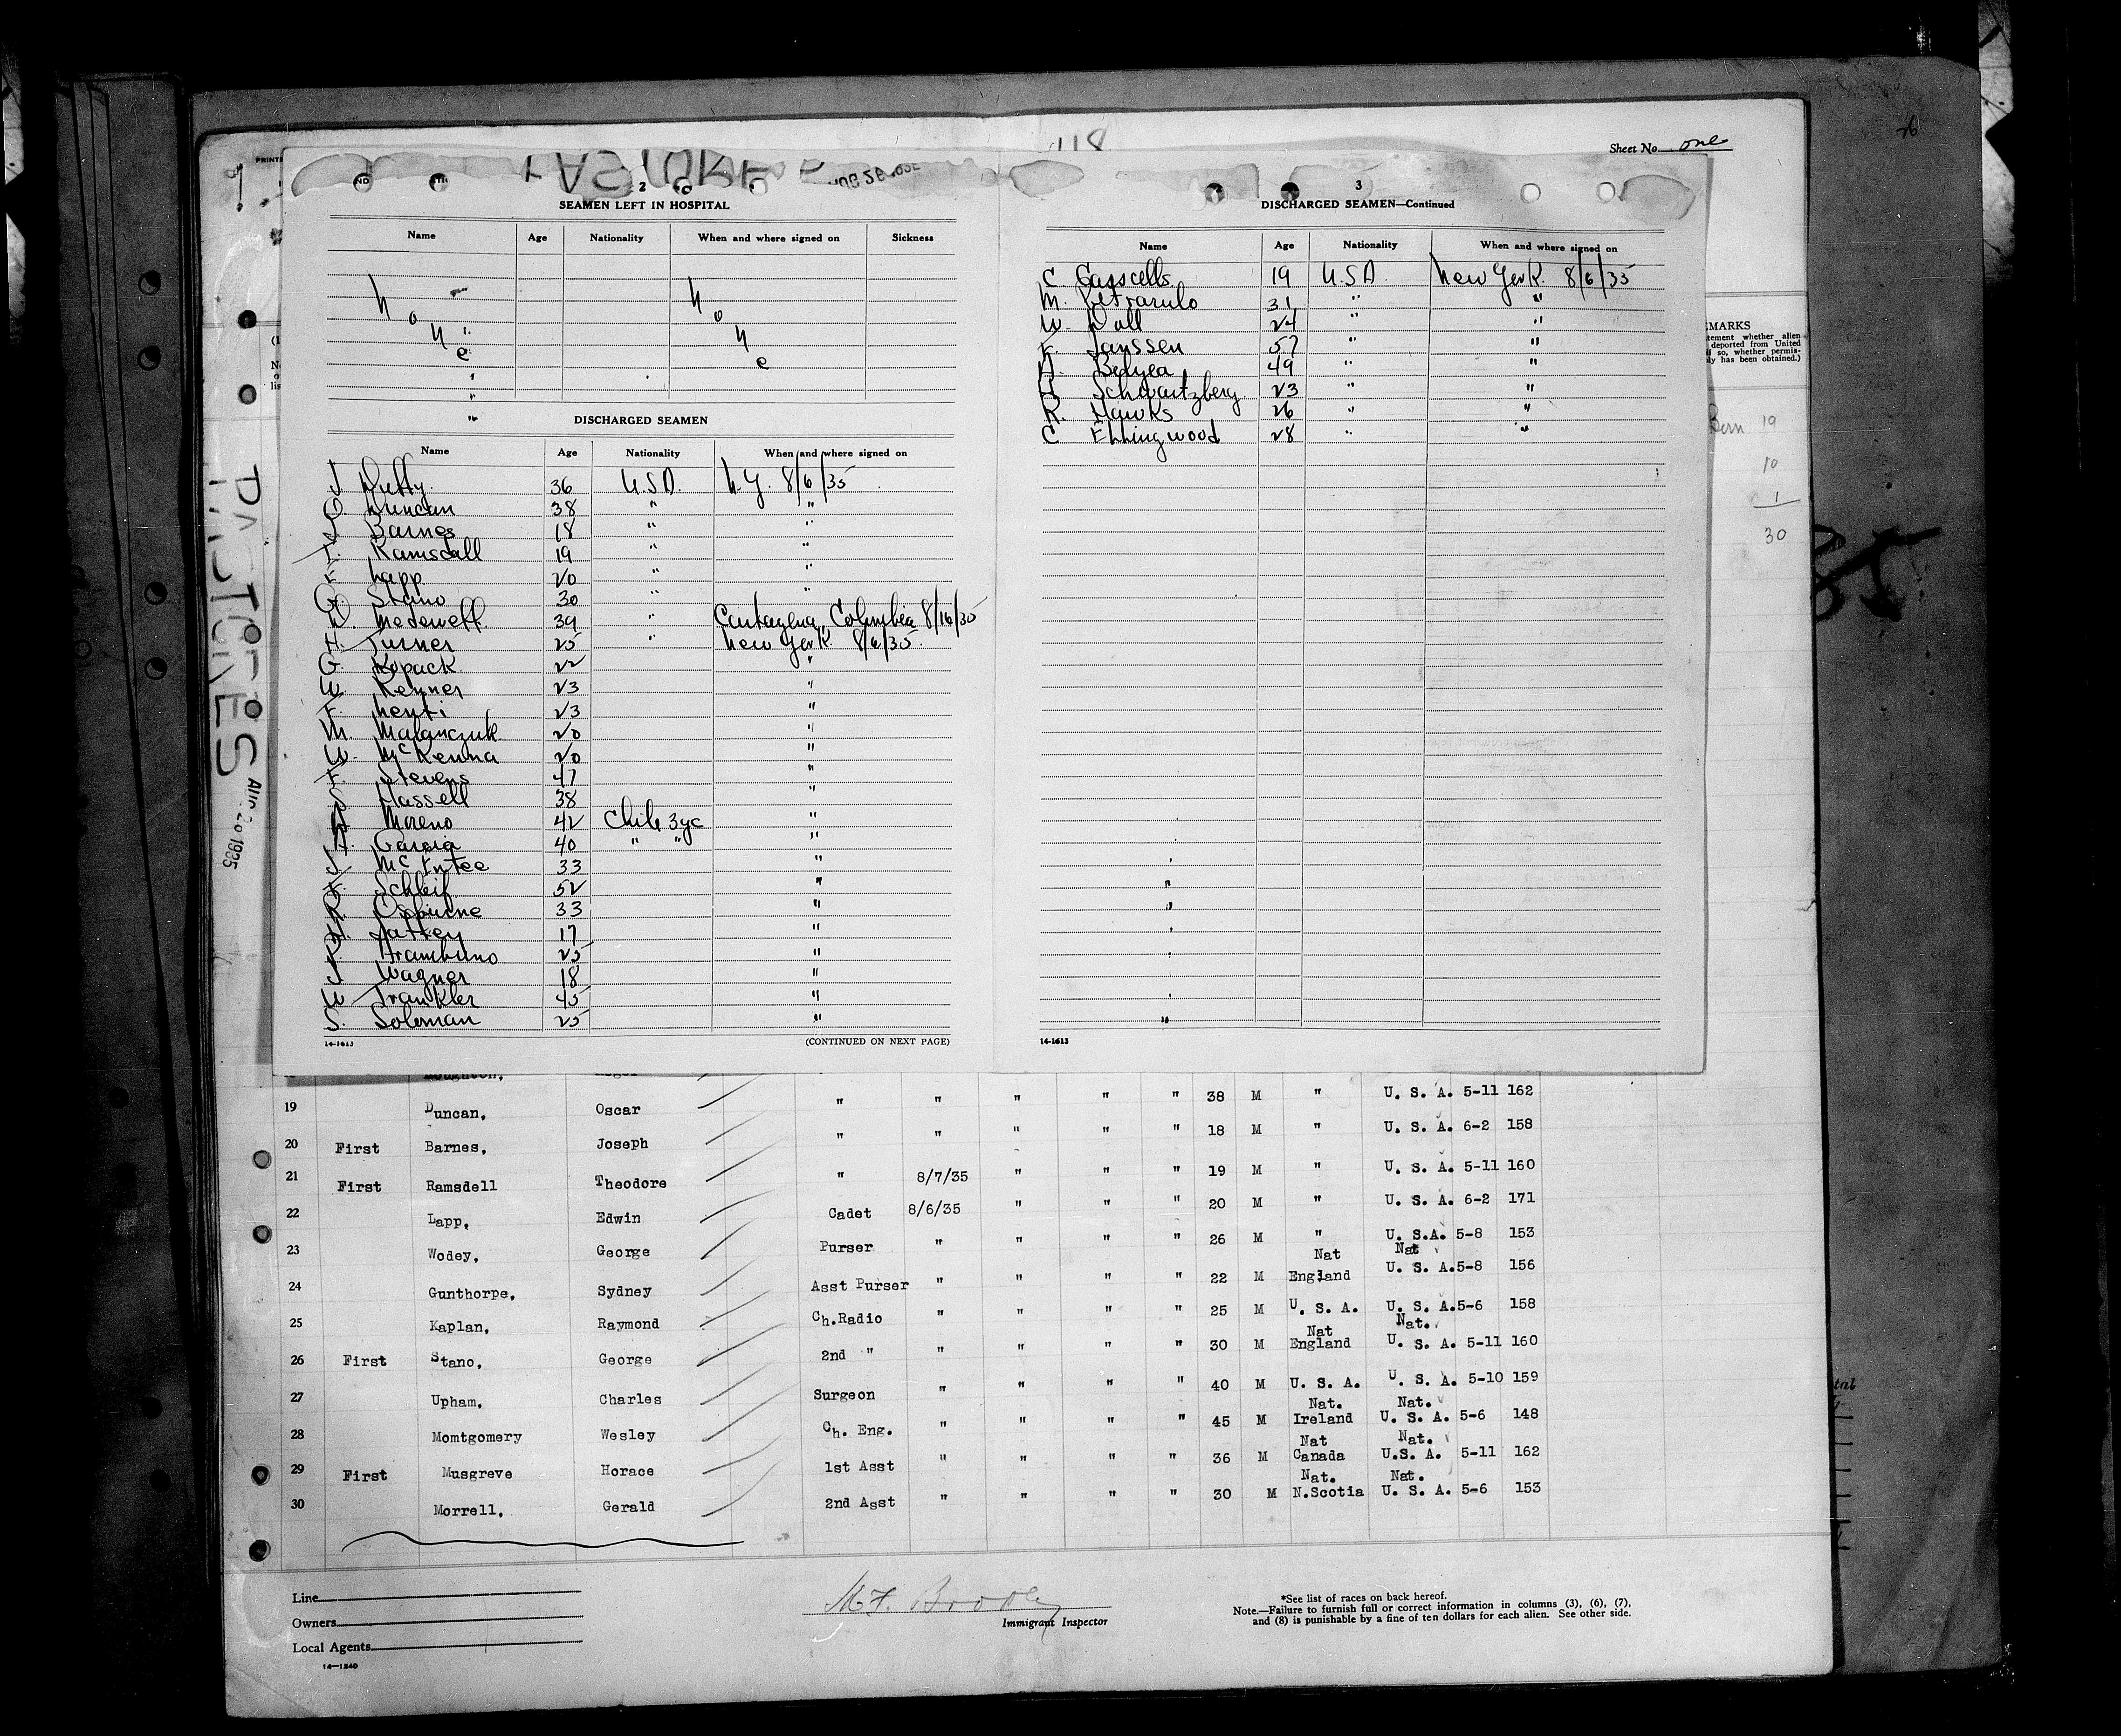 Sheet No. one
PASTORES
AUG 26 1935
2
SEAMEN LEFT IN HOSPITAL
Name Age Nationality When and where signed on Sickness
None None
DISCHARGED SEAMEN
Name Age Nationality When and where signed on
J Duffy 36 U.S.A. N.Y. 8/6/35
O Duncan 38 " "
J Barnes 18 " "
T. Ramsdall 19 " "
E Lapp 20 " "
G. Stano 30 " "
D. Medewell 39 " Cartagena, Columbia 8/16/35
H. Turner 25 " New York 8/6/35
G Kopack 22 "
W. Kenner 23 "
F. Nenti 23 "
M. Malanczuk 20 "
W. McKenna 20 "
F. Stevens 47 "
S Hassell 38 "
Moreno 42 Chile 3yc "
A. Garcia 40 " " "
J McEntee 33 "
F. Schleif 52 "
R. Osburne 33 "
17 "
P. Trambuno 25 "
J Wagner 18 "
W Trankler 45 "
S. Soloman 25 "
14-1613 (CONTINUED ON NEXT PAGE)
3
DISCHARGED SEAMEN—Continued
Name Age Nationality When and where signed on
C Casscells 19 U.S.A. New York 8/6/35
M. Petrarulo 31 " "
W. Wall 24 " "
F. Janssen 57 " "
A. Belyea 49 " "
H Schwartzberg 23 " "
R. Hawks 26 " "
C Ellingwood 28 " "
14-1613
19
10
1
30
19 Duncan, Oscar " " " " " 38 M " U. S. A. 5-11 162
20 First Barnes, Joseph " " " " " 18 M " U. S. A. 6-2 158
21 First Ramsdell Theodore " 8/7/35 " " " 19 M " U. S. A. 5-11 160
22 Lapp, Edwin Cadet 8/6/35 " " " 20 M " U. S. A. 6-2 171
23 Wodey, George Purser " " " " 26 M " U. S.A. 5-8 153
24 Gunthorpe, Sydney Asst Purser " " " " 22 M Nat England Nat U. S. A. 5-8 156
25 Kaplan, Raymond Ch.Radio " " " " 25 M U. S. A. U. S. A. 5-6 158
26 First Stano, George 2nd " " " " " 30 M Nat England Nat. U. S. A. 5-11 160
27 Upham, Charles Surgeon " " " " 40 M U. S. A. U. S. A. 5-10 159
28 Momtgomery Wesley Ch. Eng. " " " " 45 M Nat. Ireland Nat. U. S. A. 5-6 148
29 First Musgreve Horace 1st Asst " " " " 36 M Nat Canada Nat. U.S. A. 5-11 162
30 Morrell, Gerald 2nd Asst " " " " 30 M Nat. N.Scotia Nat. U. S. A. 5-6 153
Line
Owners
Local Agents
14-1240
Immigrant Inspector
*See list of races on back hereof.
Note.—Failure to furnish full or correct information in columns (3), (6), (7),
and (8) is punishable by a fine of ten dollars for each alien. See other side.